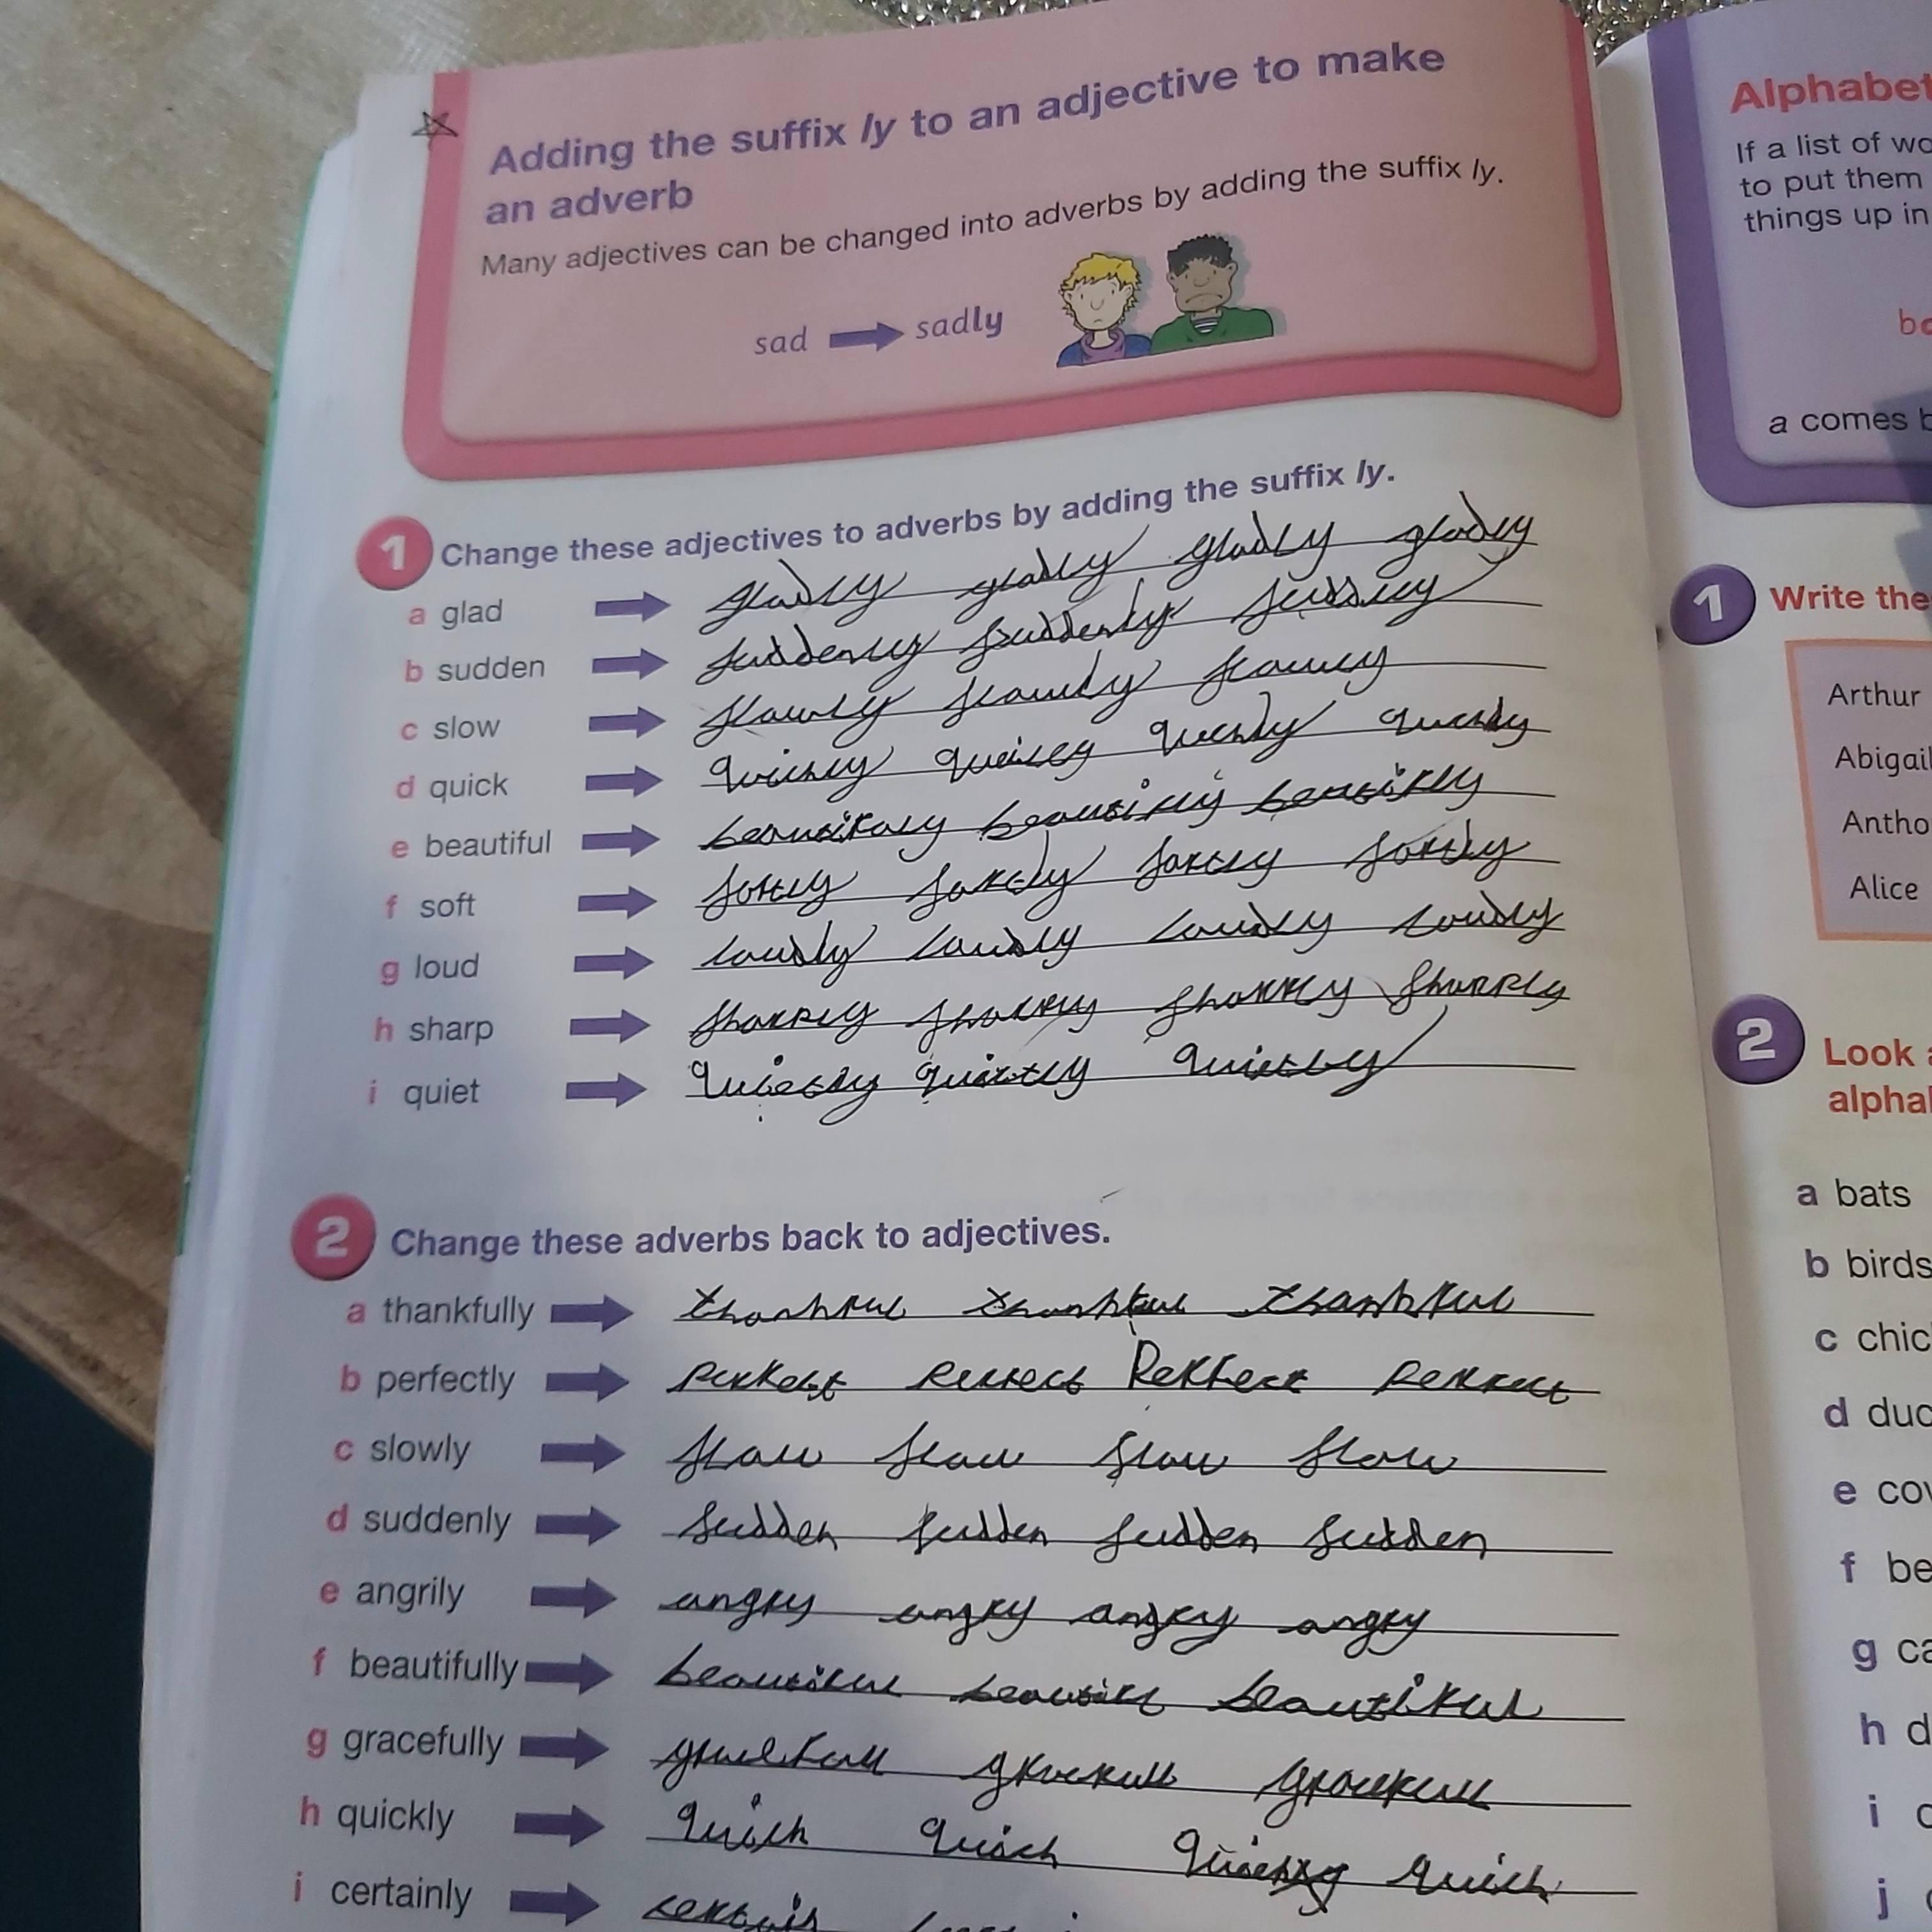 Adding the suffix ly to an adjective to make
an adverb
Many adjectives can be changed into adverbs by adding the suffix ly.
sad sadly
1 Change these adjectives to adverbs by adding the suffix ly.
a glad gladly gladly gladly gladly
b sudden suddenly suddenly
c slow slowly slowly slowly
d quick quickly
e beautiful
f soft softly softly softly softly
g loud loudly loudly loudly loudly
h sharp sharply sharply sharply sharply
i quiet quietly quietly quietly
2 Change these adverbs back to adjectives.
a thankfully thankful thankful thankful
b perfectly perfect perfect Perfect perfect
c slowly slow slow slow slow
d suddenly sudden sudden sudden sudden
e angrily angry angry angry angry
f beautifully beautiful beautiful
g gracefully
h quickly quick quick quick
i certainly
Alphabet
If a list of wo
to put them
things up in
a comes b
1 Write the
Arthur
Abigail
Antho
Alice
2 Look
alphal
a bats
b birds
c chic
d duc
e cov
f be
g ca
h d
i c
j